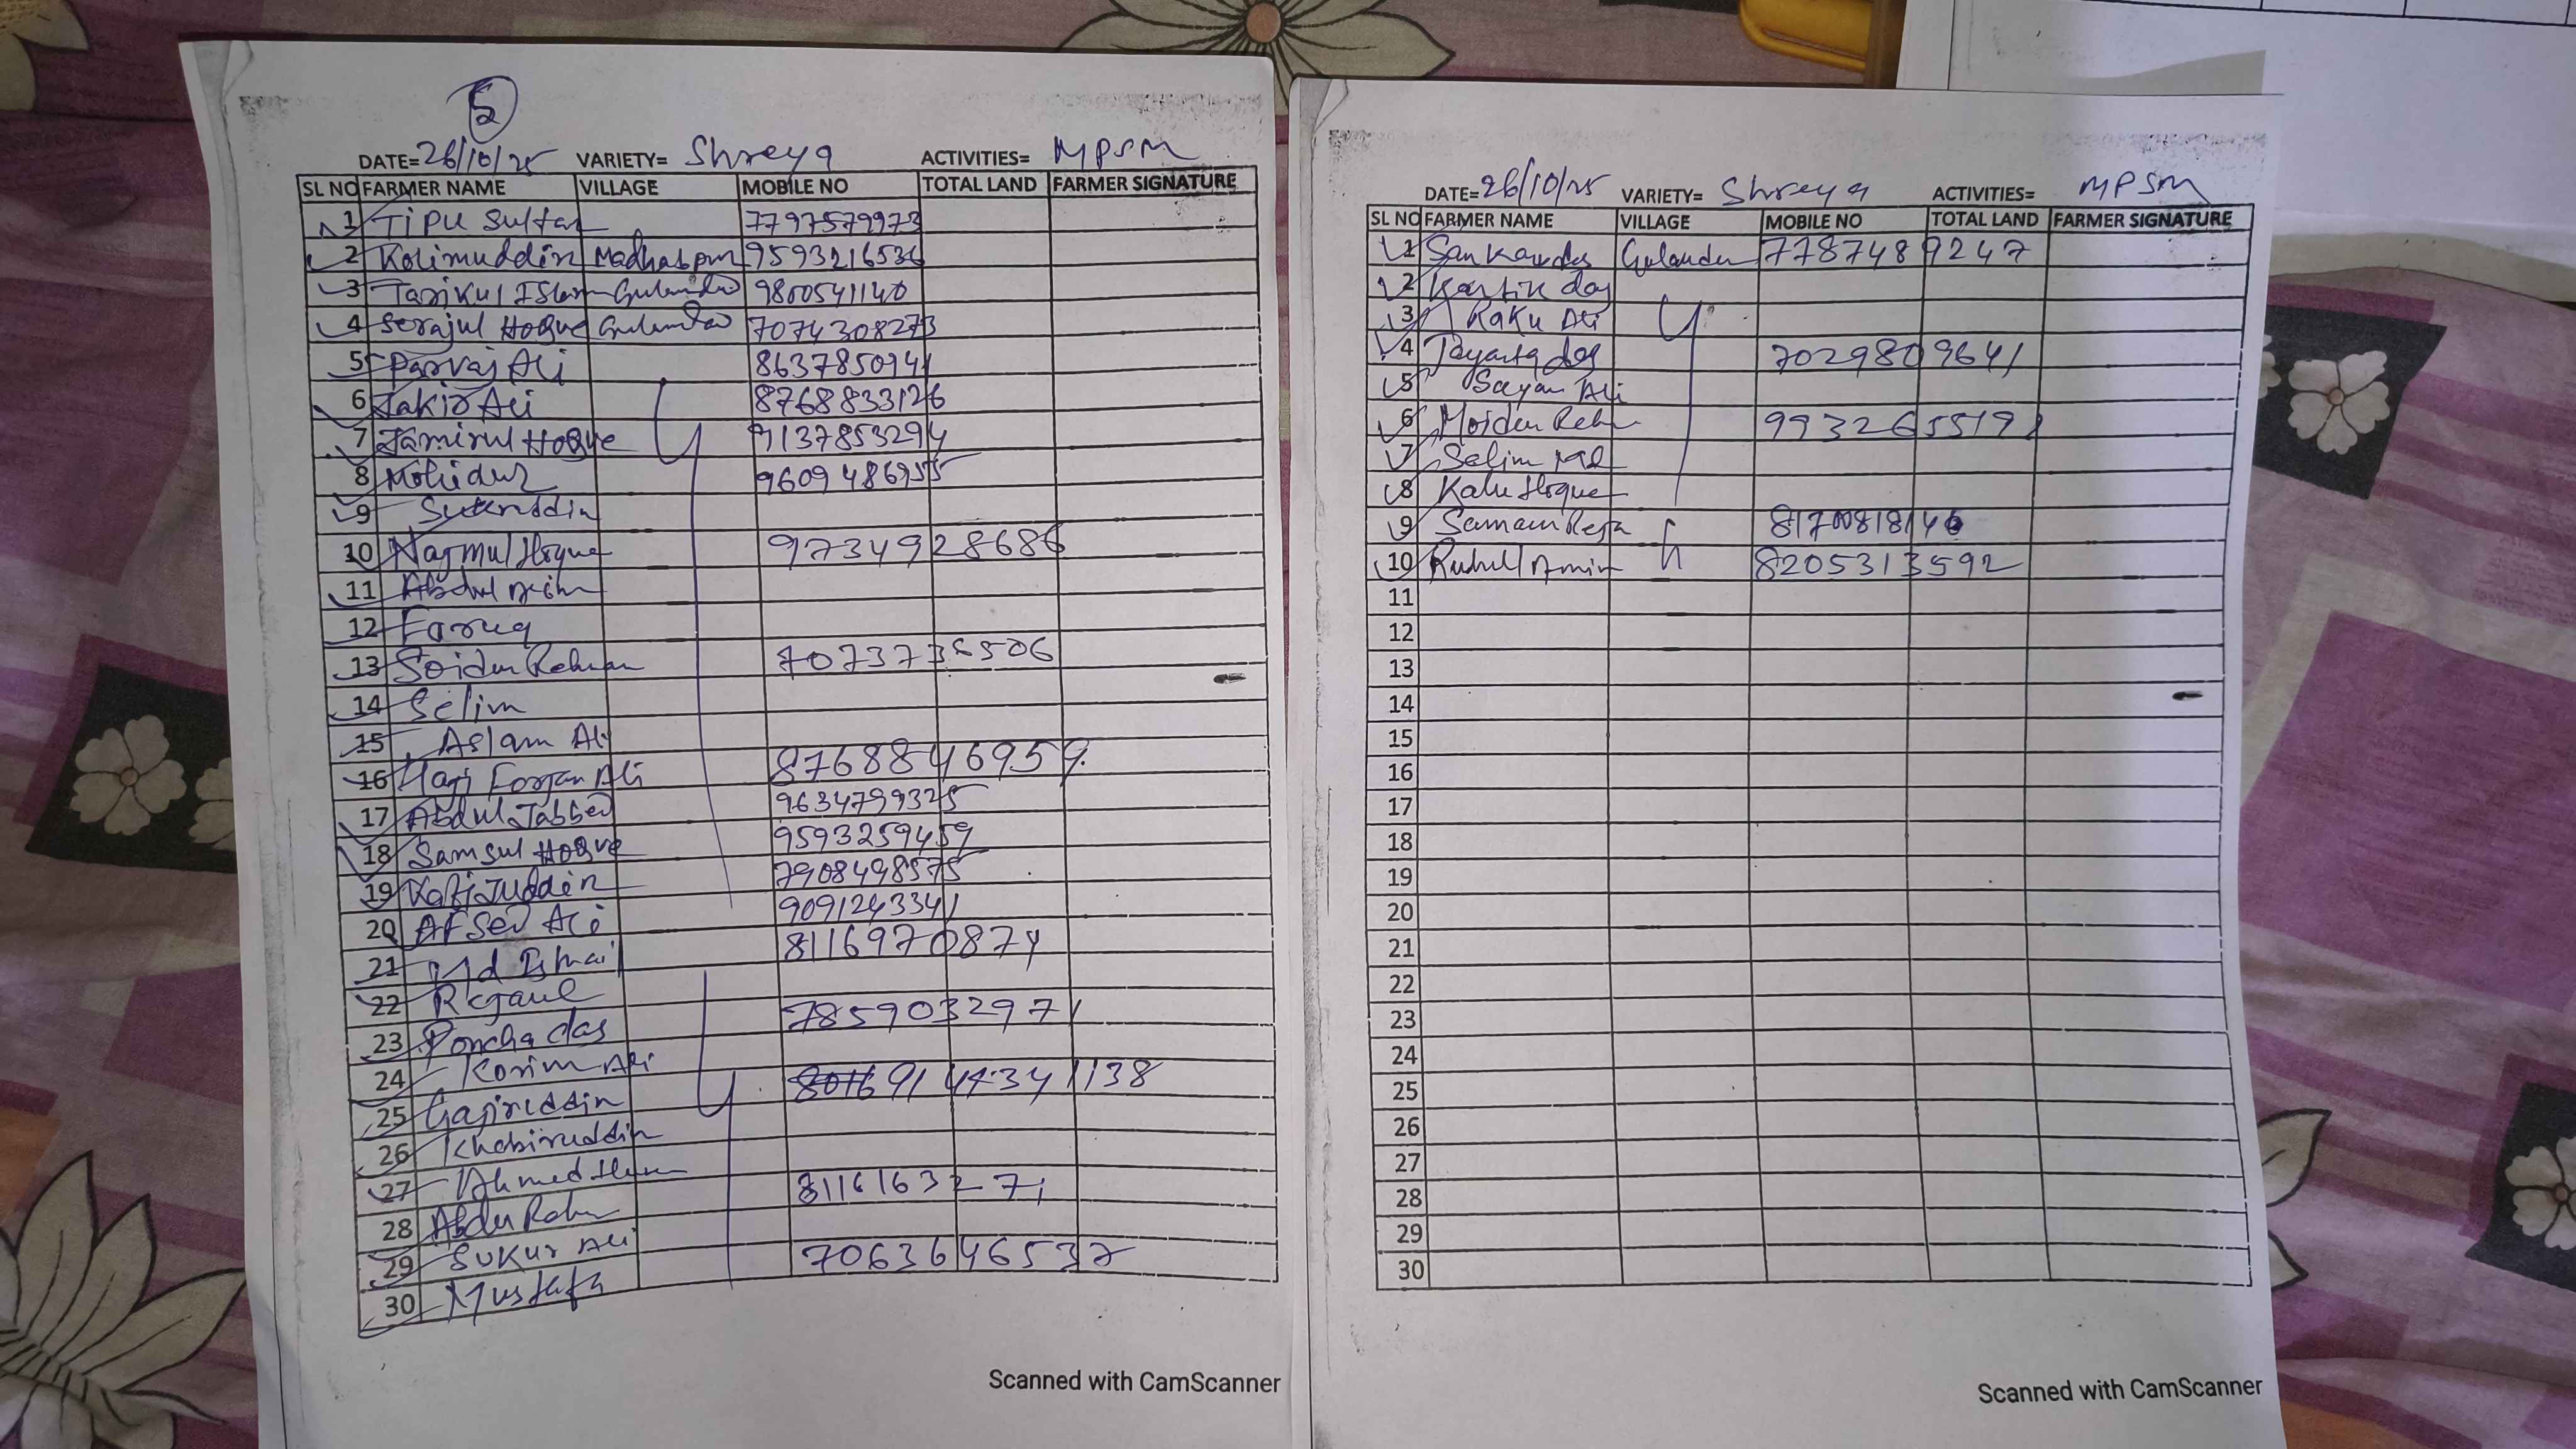 5
2
DATE=26/10/25 VARIETY= Shreya ACTIVITIES= MPSM
SL NO FARMER NAME VILLAGE MOBILE NO TOTAL LAND FARMER SIGNATURE
1 Tipu Sultan 7797579973
2 Kolimuddin Madhabpur 9593216536
3 Tarikul Islam 9800541140
4 Serajul Hoque 7074308273
5 Parvaj Ali
6 Jakir Ali 8768833126
7 Jamirul Hoque 9137853294
8 Mohidur
9
10 Najmul Hoque 9734928686
11 Abdul
12 Faruq
13 Soidur Rehman
14 Selim
15 Aslam Ali
16 Haji Forjan Ali 8768846959
17 Abdul Jabbed 9634799325
18 Samsul Hoque 9593259459
19 Kafijuddin 7908498575
20 Afsed Ali 9091243341
21 Md Ismail 8116970874
22 Rejaul
23 Poncha das 7859032971
24 Korim Ali
25 Gajiruddin
26 Khabiruddin
27 Ahmed
28 Abdur 8116163271
29 Sukur Ali
30 Mustafa 7063646537
Scanned with CamScanner
DATE=26/10/25 VARIETY= Shreya ACTIVITIES= MPSM
SL NO FARMER NAME VILLAGE MOBILE NO TOTAL LAND FARMER SIGNATURE
1 Sankar das 7787489247
2 Kartik das
3 Kaku Ali
4 Jayanta das 7029809641
5 Sayan Ali
6
7 Selim Md
8 Kalu Hoque
9
10 Ruhul Amin 8205313592
11
12
13
14
15
16
17
18
19
20
21
22
23
24
25
26
27
28
29
30
Scanned with CamScanner